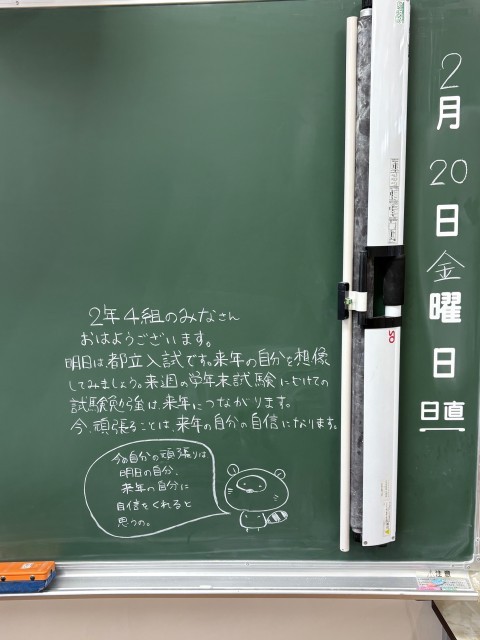 2月20日金曜日
日直
2年4組のみなさん
おはようございます。
明日は都立入試です。来年の自分を想像
してみましょう。来週の学年末試験にむけての
試験勉強は、来年につながります。
今、頑張ることは、来年の自分の自信になります。
今の自分の頑張りは
明日の自分、
来年の自分に
自信をくれると
思うの。
注意